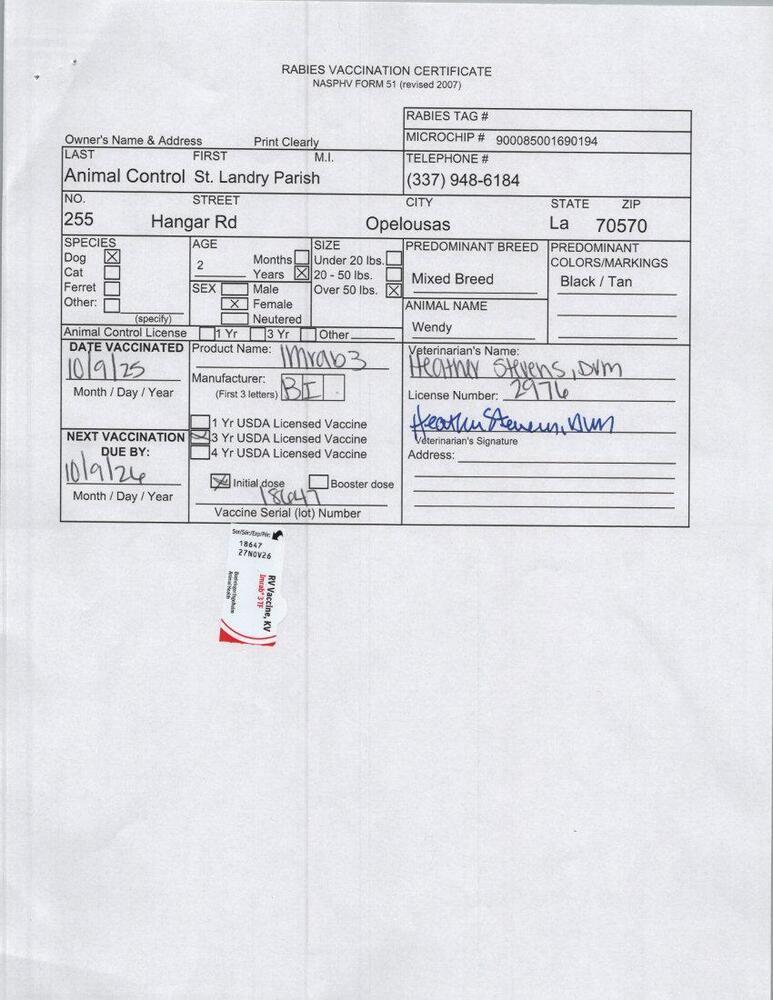 RABIES VACCINATION CERTIFICATE
NASPHV FORM 51 (revised 2007)
RABIES TAG #
Owner's Name & Address Print Clearly
MICROCHIP # 900085001690194
LAST FIRST M.I.
TELEPHONE #
Animal Control St. Landry Parish
(337) 948-6184
NO. STREET CITY STATE ZIP
255 Hangar Rd Opelousas La 70570
SPECIES
Dog X
Cat
Ferret
Other:
(specify)
AGE
2
Months
Years X
SEX Male
X Female
Neutered
SIZE
Under 20 lbs.
20 - 50 lbs.
Over 50 lbs. X
PREDOMINANT BREED
Mixed Breed
PREDOMINANT
COLORS/MARKINGS
Black / Tan
ANIMAL NAME
Wendy
Animal Control License 1 Yr 3 Yr Other
DATE VACCINATED
10/9/25
Month / Day / Year
NEXT VACCINATION
DUE BY:
10/9/26
Month / Day / Year
Product Name: Imrab3
Manufacturer: BI
(First 3 letters)
1 Yr USDA Licensed Vaccine
3 Yr USDA Licensed Vaccine
4 Yr USDA Licensed Vaccine
X Initial dose Booster dose
18647
Vaccine Serial (lot) Number
Veterinarian's Name:
Heather Stevens, DVM
License Number: 2976
Heather Stevens, DVM
Veterinarian's Signature
Address:
18647
27NOV26
RV Vaccine, KV
Imrab® 3 TF
Boehringer Ingelheim
Animal Health